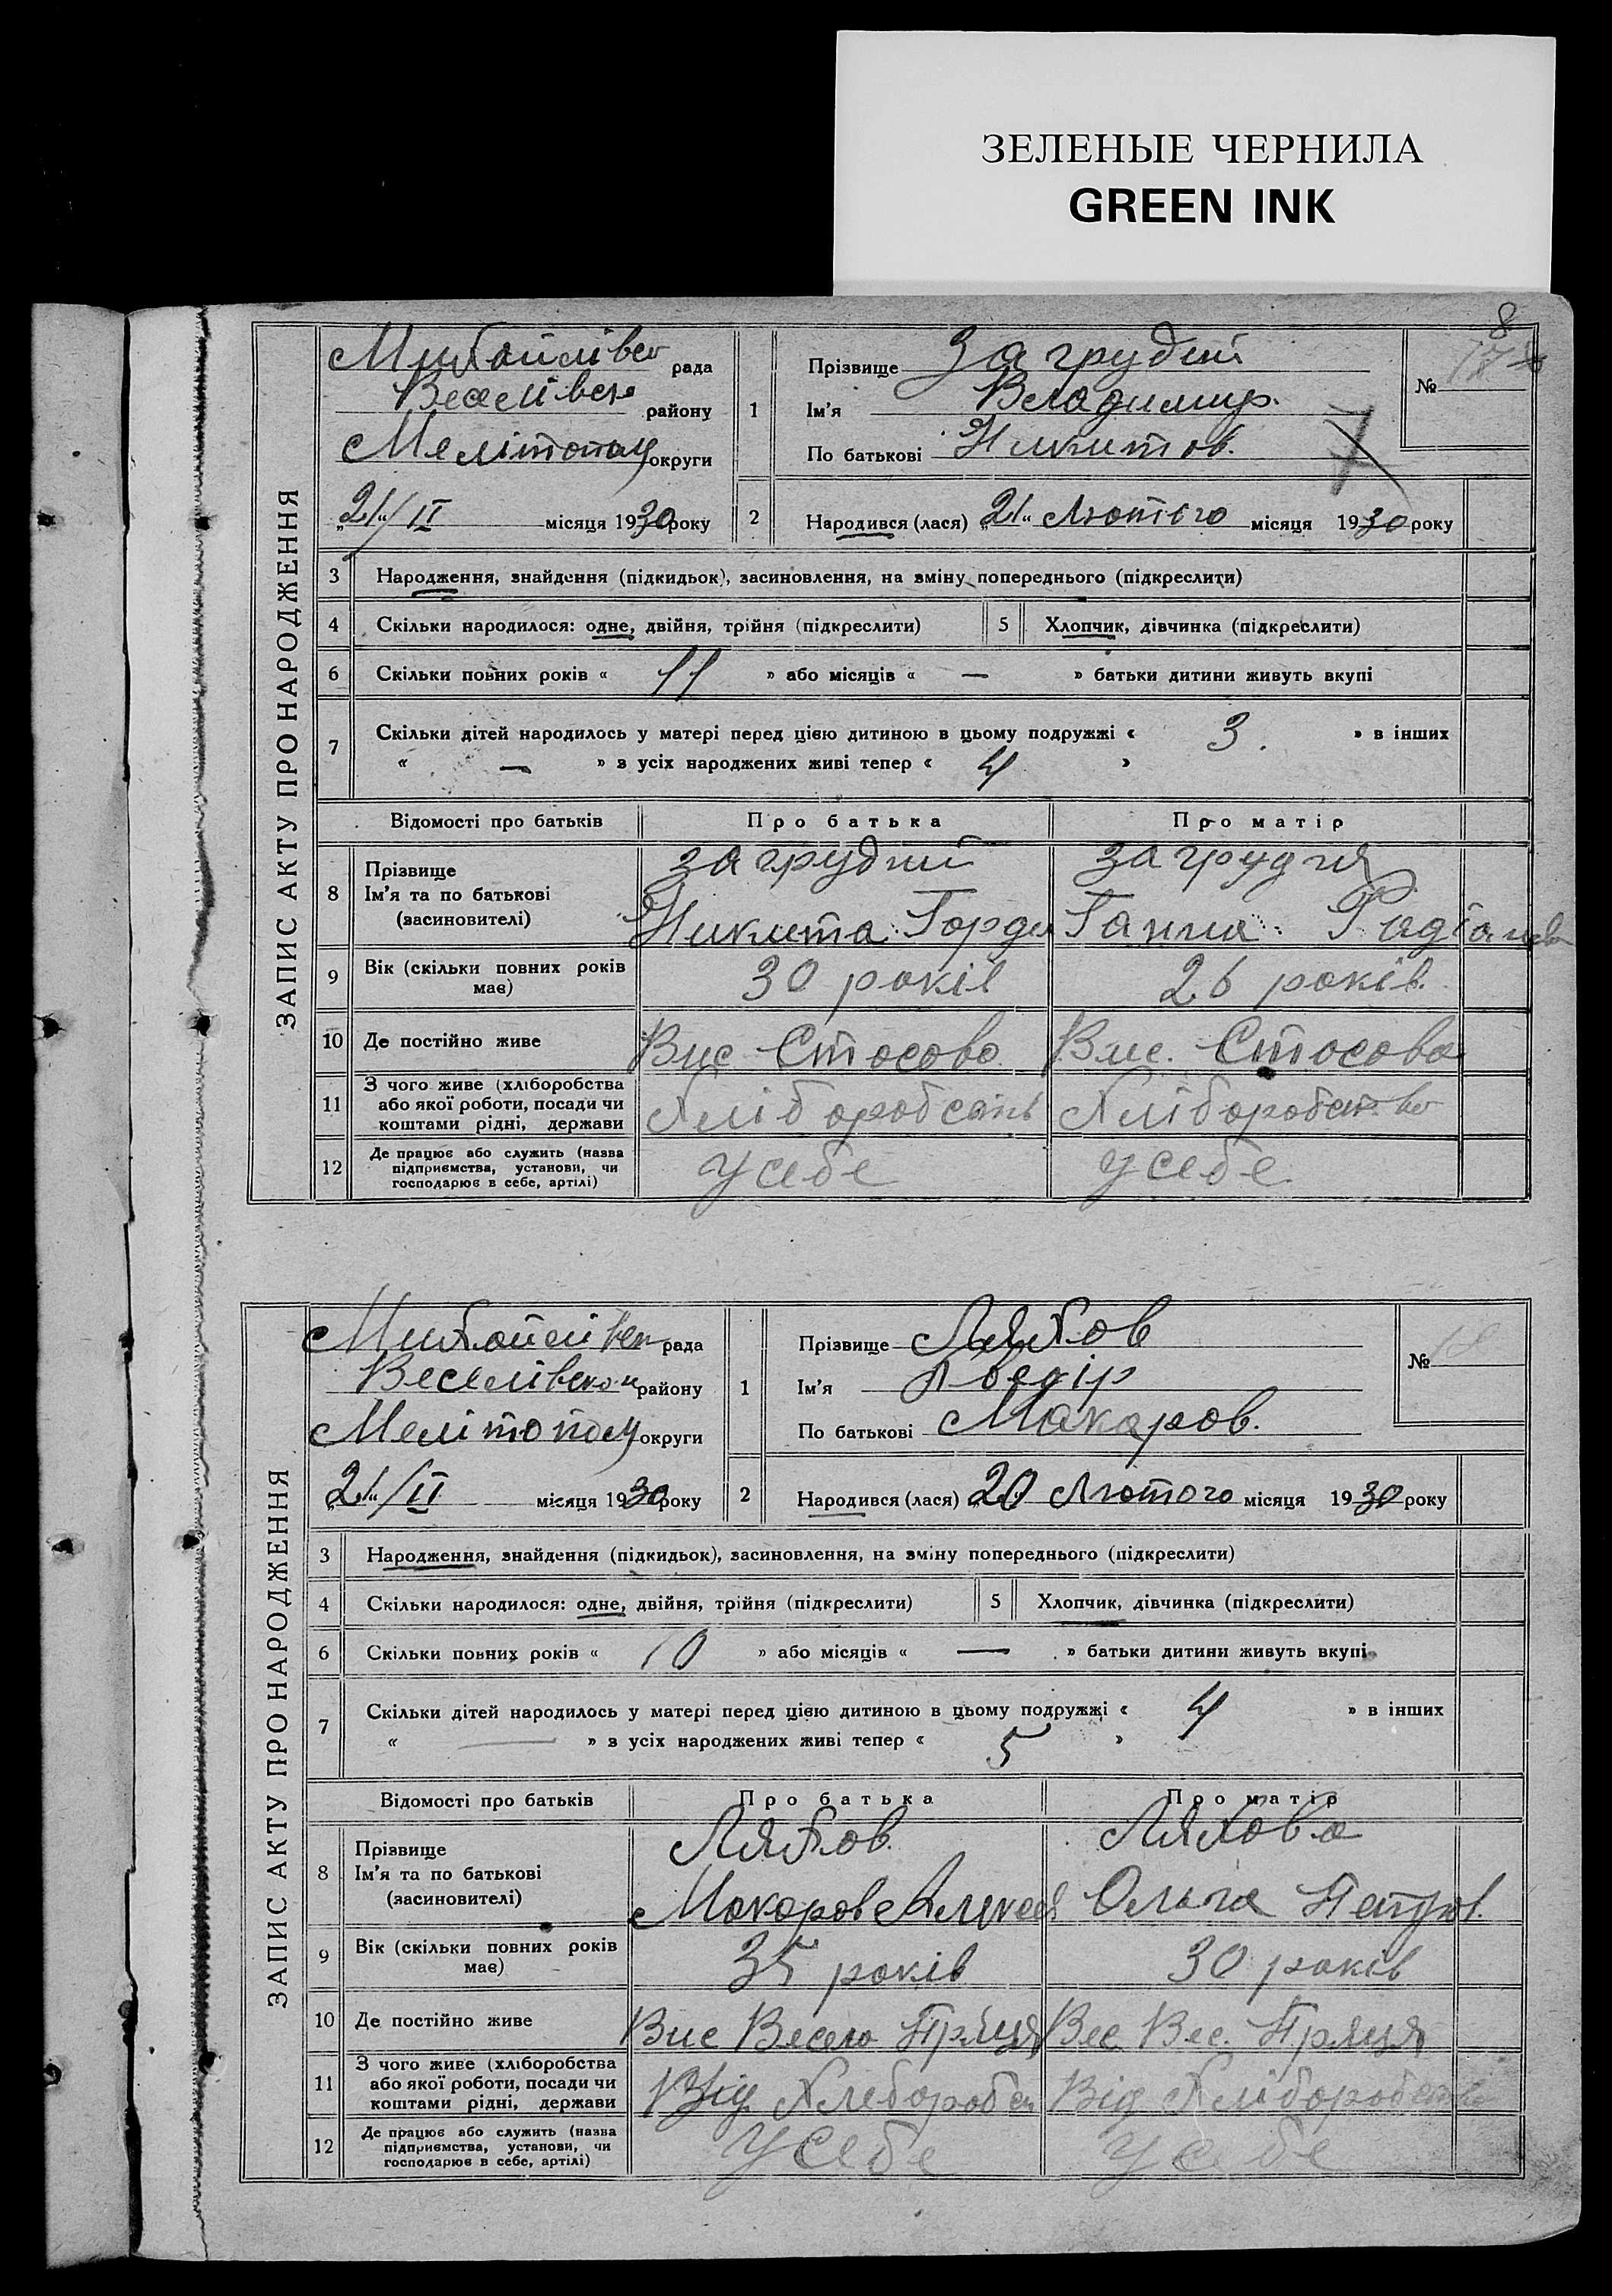 ЗЕЛЕНЫЕ ЧЕРНИЛА
GREEN INK
8
ЗАПИС АКТУ ПРО НАРОДЖЕННЯ
Михайлівсь рада
Веселівсь району
Мелітопол округи
„21“/II місяця 1930 року
1
Прізвище Загрудний
Ім'я Владимир.
По батькові Никитов.
№ 17
2
Народився (лася) „21“ Лютого місяця 1930 року
3 Народження, знайдення (підкидьок), засиновлення, на зміну попереднього (підкреслити)
4 Скільки народилося: одне, двійня, трійня (підкреслити) 5 Хлопчик, дівчинка (підкреслити)
6 Скільки повних років « 11 » або місяців « — » батьки дитини живуть вкупі
7 Скільки дітей народилось у матері перед цією дитиною в цьому подружжі « 3. » в інших
« — » з усіх народжених живі тепер « 4 »
Відомості про батьків Про батька Про матір
8 Прізвище
Ім'я та по батькові
(засновителі)
Загрудний
Никита Горде
Загрудня
Ганна
9 Вік (скільки повних років має) 30 років 26 років.
10 Де постійно живе Вис Стосово Вис. Стосово
11 З чого живе (хліборобства
або якої роботи, посади чи
коштами рідні, держави
Хліборобств
12 Де працює або служить (назва
підприємства, установи, чи
господарює в себе, артілі)
У себе У себе
ЗАПИС АКТУ ПРО НАРОДЖЕННЯ
Михайлівсь рада
Веселівсько району
Мелітопол округи
„21“/II місяця 1930 року
1
Прізвище Ляхов
Ім'я
По батькові Макаров.
№ 18
2
Народився (лася) „20 Лютого місяця 1930 року
3 Народження, знайдення (підкидьок), засиновлення, на зміну попереднього (підкреслити)
4 Скільки народилося: одне, двійня, трійня (підкреслити) 5 Хлопчик, дівчинка (підкреслити)
6 Скільки повних років « 10 » або місяців « — » батьки дитини живуть вкупі
7 Скільки дітей народилось у матері перед цією дитиною в цьому подружжі « 4 » в інших
« — » з усіх народжених живі тепер « 5 »
Відомості про батьків Про батька Про матір
8 Прізвище
Ім'я та по батькові
(засиновителі)
Ляхов.
Макаров Алексей
Ляхова
Ольга Петров.
9 Вік (скільки повних років має) 35 років 30 років
10 Де постійно живе Вис Весело Вес.
11 З чого живе (хліборобства
або якої роботи, посади чи
коштами рідні, держави
Від Хлеборобс Від Хліборобств
12 Де працює або служить (назва
підприємства, установи, чи
господарює в себе, артілі)
У себе У себе